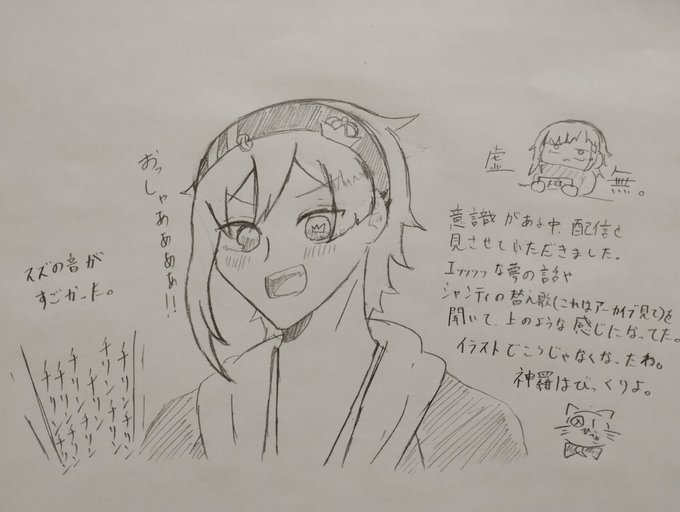 おっしゃあぁぁぁぁ!!
スズの音が
すごかった。
チリンチリン
チリンチリン
チリンチリン
チリンチリン
虚 無。
意識がある中、配信を
見させていただきました。
エッッッッな夢の話や
シャンティの替え歌(これはアーカイブ見て)を
聞いて、上のような感じになってた。
イラストどころじゃなくなったわ。
神羅はびっくりよ。